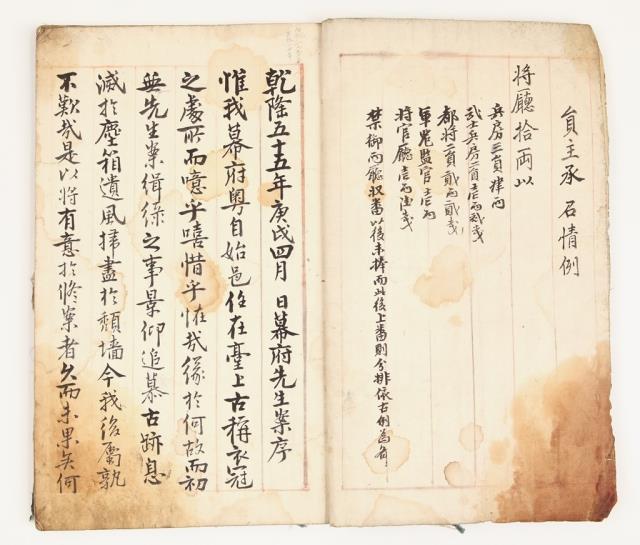 員主承 召情例
將廳拾両以
兵房三員肆両
武士兵房一員壱両貳戔
都将二員貳両二戔
軍器監官壱両
將官廳壱両陸戔
禁御両廳以番以後未捧而此後上番則分排依古例為有
乾隆五十五年庚戌四月 日幕府先生案序
惟我幕府粤自始邑俗在臺上古稱衣冠
之處所而噫乎嘻惜乎怪哉緣於何故而初
無先生案緝緑之事景仰追慕古跡息
滅於塵箱遺風掃盡於頹墻今我後屬孰
不歎哉是以將有意於修案者久而未果矣何